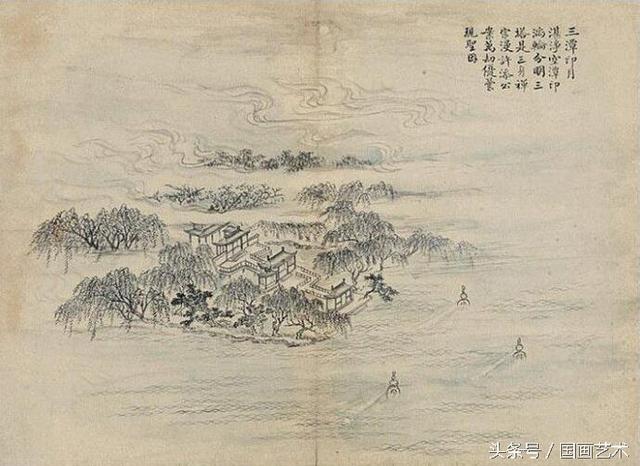 三潭印月
湛淨空潭印
滿輪分明三
塔是三身禪
宗漫許添公
案萬劫優曇
現聖因
头条号 / 国画艺术